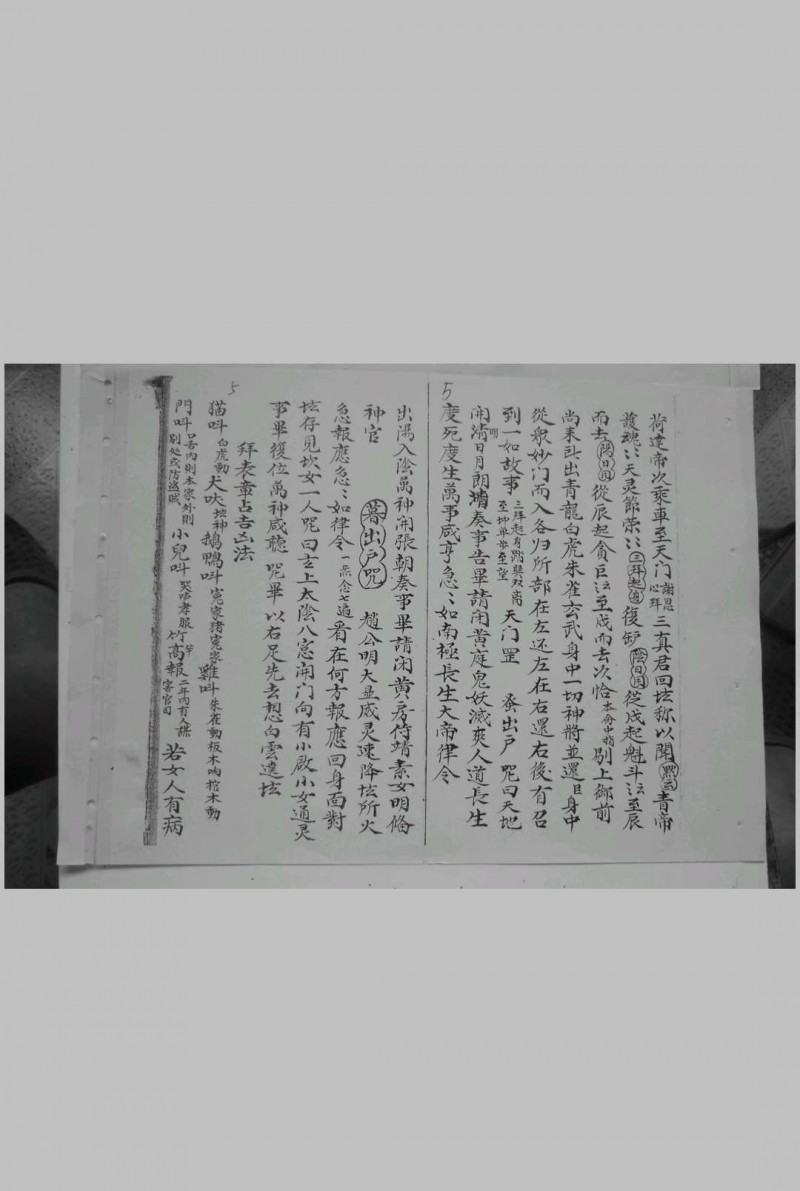 荷達帝次乘車至天门謝恩心拜三真君回坛称以聞默云青帝
護魂〻天灵節荣〻三拜起過復炉陰日囯從戌起魁斗〻至辰
而去陽日囯從辰起貪巨〻至戌而去次恰本命中指剔上御前
尚来㠯出青龍白虎朱雀玄武身中一切神將並還㠯身中
從衆妙门而入各归所部在左还左在右還右後有召
到一如故事三拜起身踏巽双崗至坤单崗至望天门罡 叅出户 咒曰天地
闲清明日月朗墉奏事告畢請闭黄庭鬼妖滅爽人道長生
5
度死度生萬事咸亨急〻如南極長生大帝律令
出陽入陰萬神開張朝奏事畢請闭黄房侍靖素女明俻
神官 暮出户咒 趙公明大显威灵速降坛所火
急報應急〻如律令一炁念七遍看在何方報應回身面對
坛存見坎女一人咒曰玄上太陰八窓闲门向有小啟小女通灵
事畢復位萬神咸聽 咒畢以右足先去想白雲遶坛
拜表章占吉凶法
5
猫呌白虎動犬吠坟神鵝鴨呌寃家猪寃家雞呌朱雀動板木响棺木動
門呌呂吝内則本家外則别处或防盗贼小兒呌哭啼孝服竹竿高報二年内有人謀害官司若女人有病